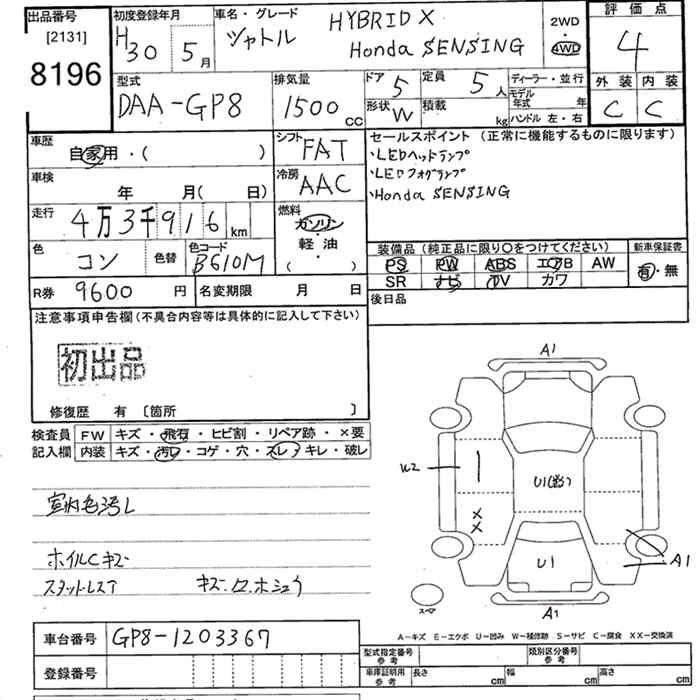 出品番号
[2131]
8196
初度登録年月
H30年 5月
車名・グレード
シャトル HYBRID X
Honda SENSING
2WD
・
4WD
評価点
4
外装 内装
C C
型式
DAA-GP8
排気量
1500 cc
ドア 5
定員 5人
形状 W
積載 kg
ディーラー・並行
モデル年式 年
ハンドル 左・右
車歴
自家用・( )
シフト FAT
車検
年 月( 日)
冷房 AAC
走行
4万3千916km
燃料
ガソリン
・
軽油
( )
色
コン
色替
色コード
B610M
R券 9600円
名変期限 月 日
セールスポイント (正常に機能するものに限ります)
・LEDヘッドランプ
・LEDフォグランプ
・Honda SENSING
装備品 (純正品に限り○をつけてください)
新車保証書
PS PW ABS エアB AW
SR ナビ TV カワ
有・無
後日品
注意事項申告欄(不具合内容等は具体的に記入して下さい)
初出品
修復歴 有 〔箇所 〕
検査員 FW キズ・飛石・ヒビ割・リペア跡・×要
記入欄 内装 キズ・汚レ・コゲ・穴・スレ・キレ・破レ
ホイルCキズ
A1
W2
U1
U1
X
X
A1
A1
スペア
A-キズ E-エクボ U-凹み W-補修跡 S-サビ C-腐食 XX-交換済
車台番号 GP8-1203367
登録番号
型式指定番号 参考
類別区分番号 参考
車庫証明用 参考
長さ cm 幅 cm 高さ cm